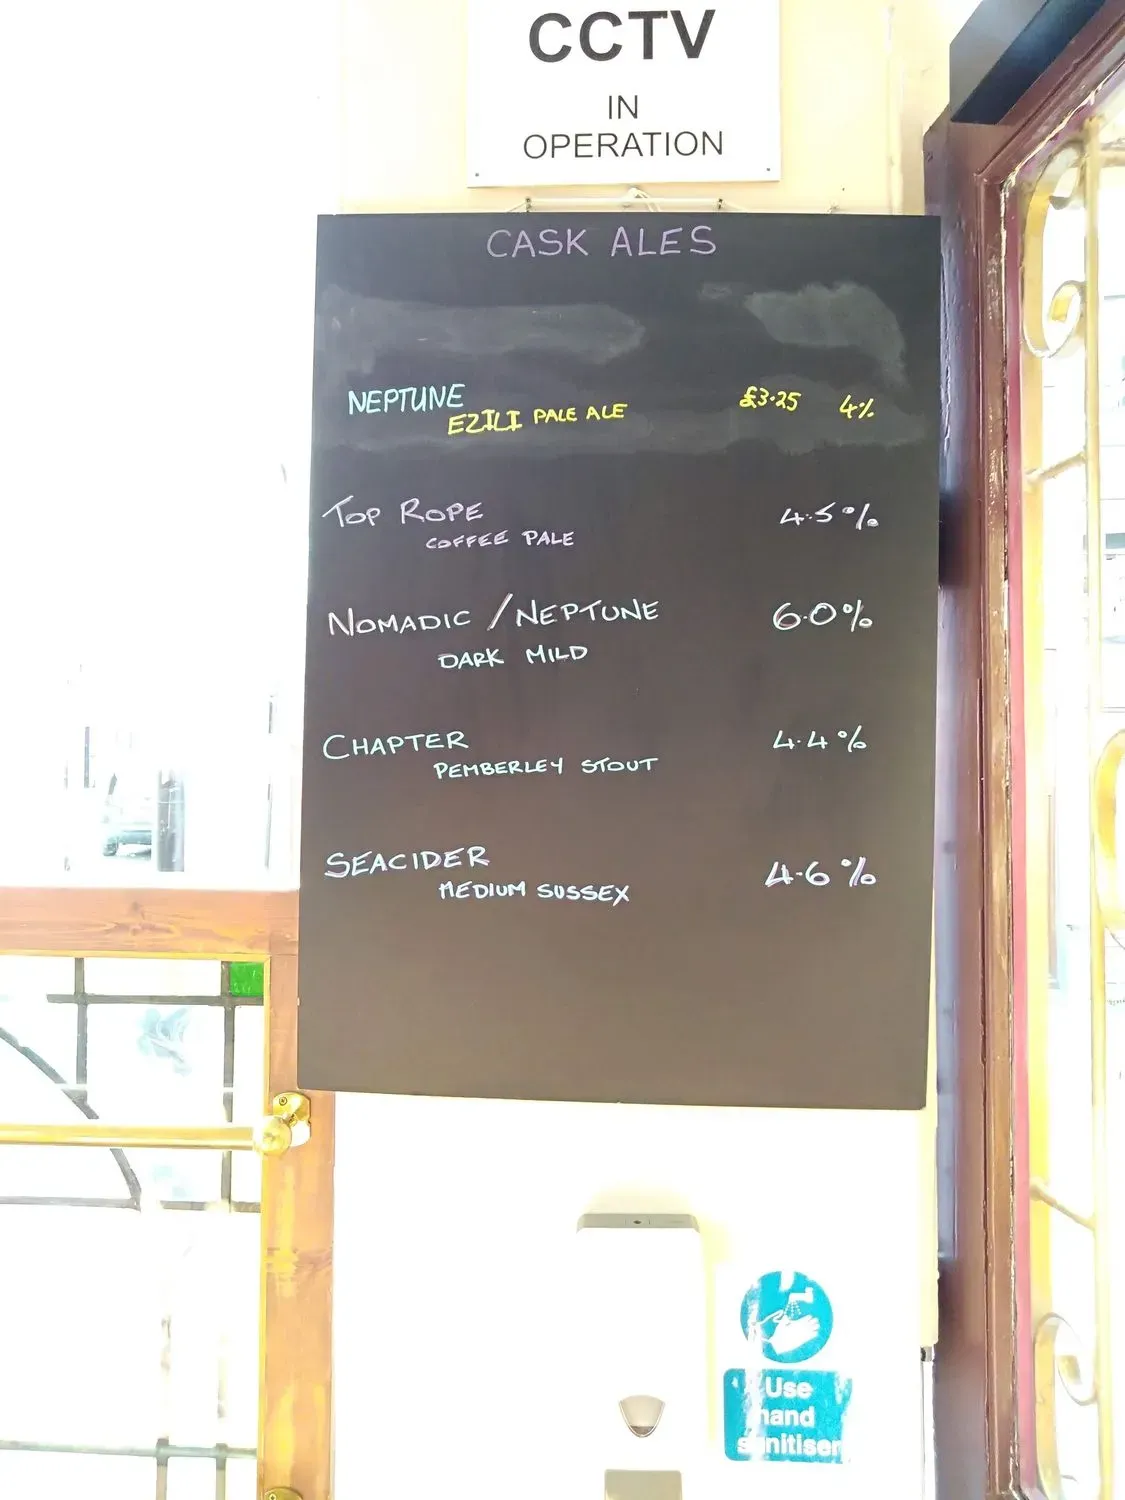 CCTV
IN
OPERATION
CASK ALES
NEPTUNE
EZILI PALE ALE £3.25 4%
TOP ROPE 4.5%
COFFEE PALE
NOMADIC / NEPTUNE 6.0%
DARK MILD
CHAPTER 4.4%
PEMBERLEY STOUT
SEACIDER 4.6%
MEDIUM SUSSEX
Use
hand
sanitiser